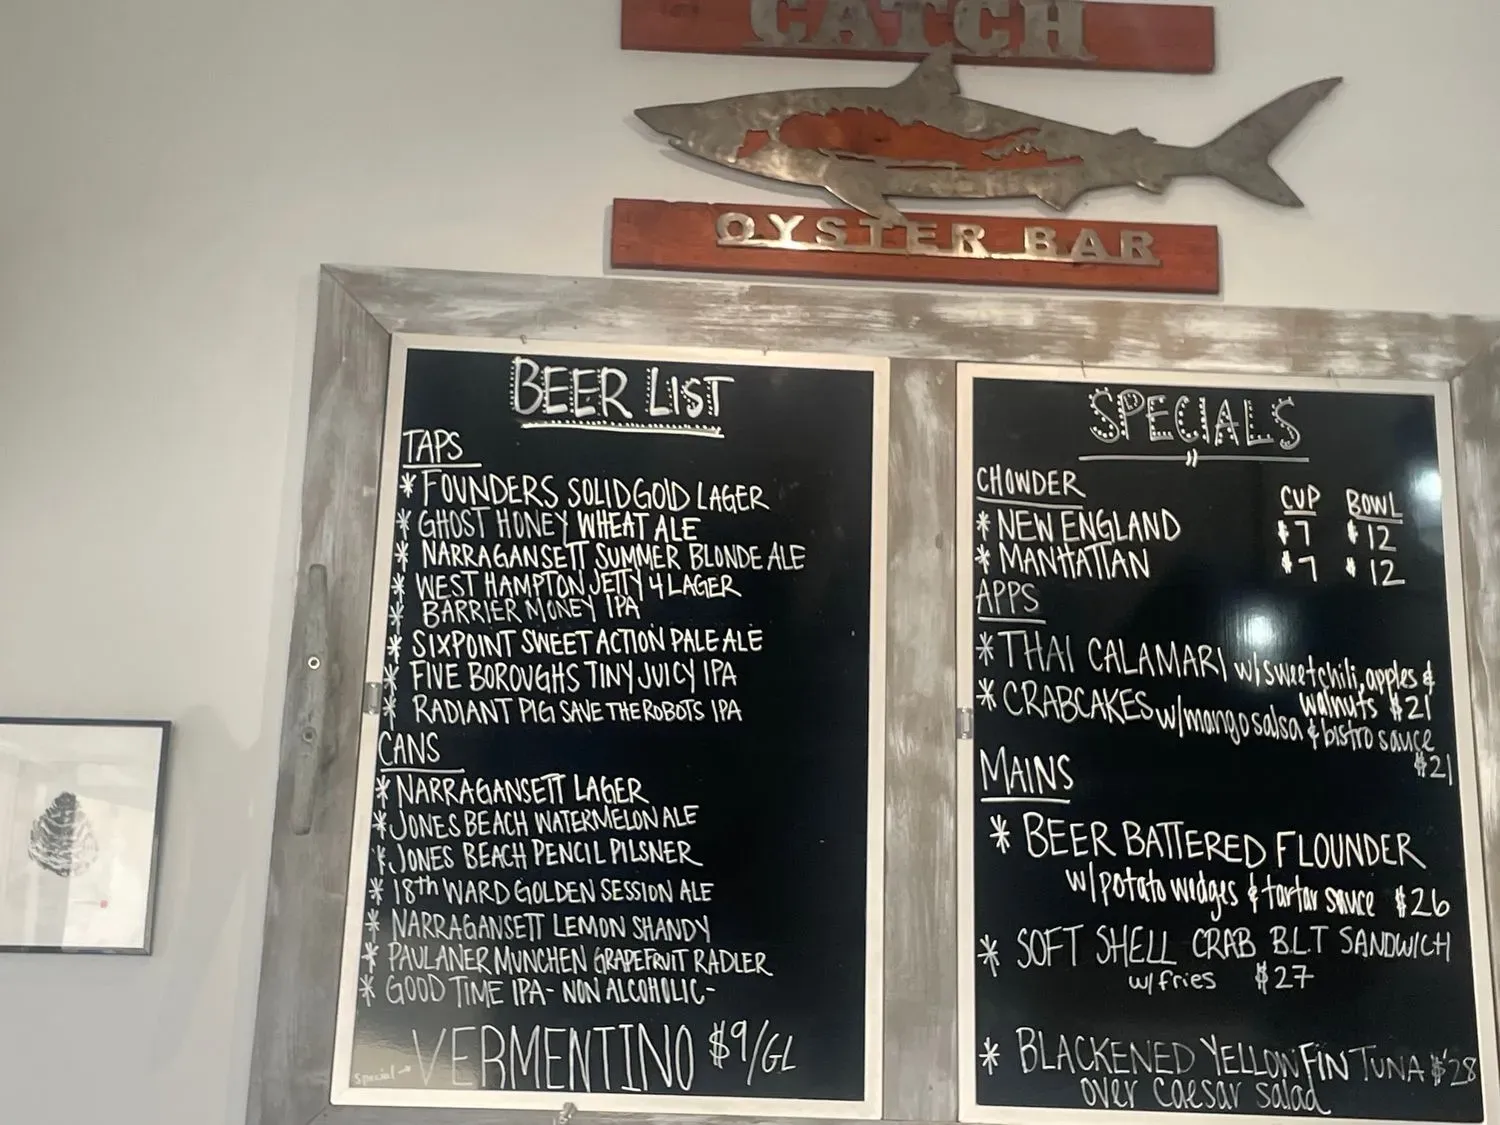 CATCH
OYSTER BAR
BEER LIST
TAPS
* FOUNDERS SOLID GOLD LAGER
* GHOST HONEY WHEAT ALE
* NARRAGANSETT SUMMER BLONDE ALE
* WEST HAMPTON JETTY 4 LAGER
* BARRIER MONEY IPA
* SIXPOINT SWEET ACTION PALE ALE
* FIVE BOROUGHS TINY JUICY IPA
* RADIANT PIG SAVE THE ROBOTS IPA
CANS
* NARRAGANSETT LAGER
* JONES BEACH WATERMELON ALE
* JONES BEACH PENCIL PILSNER
* 18th WARD GOLDEN SESSION ALE
* NARRAGANSETT LEMON SHANDY
* PAULANER MUNCHEN GRAPEFRUIT RADLER
* GOOD TIME IPA - NON ALCOHOLIC -
special → VERMENTINO $9/GL
SPECIALS
CHOWDER CUP BOWL
* NEW ENGLAND $7 $12
* MANHATTAN $7 $12
APPS
* THAI CALAMARI w/sweet chili, apples &
walnuts $21
* CRABCAKES w/mango salsa & bistro sauce
$21
MAINS
* BEER BATTERED FLOUNDER
w/potato wedges & tartar sauce $26
* SOFT SHELL CRAB B.L.T SANDWICH
w/fries $27
* BLACKENED YELLOWFIN TUNA $28
over caesar salad